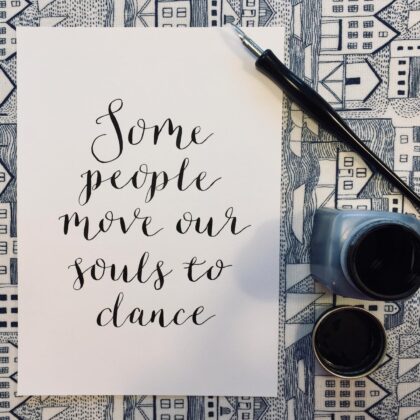 Some
people
move our
souls to
dance